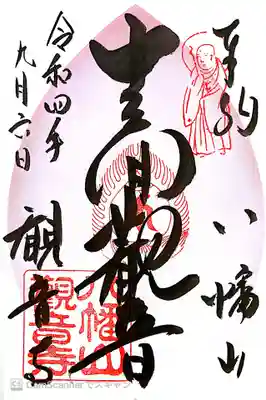 奉拝
八幡山
十一面觀音
令和四年
九月六日
觀音寺
八幡山
觀音寺
CS CamScanner でスキャン